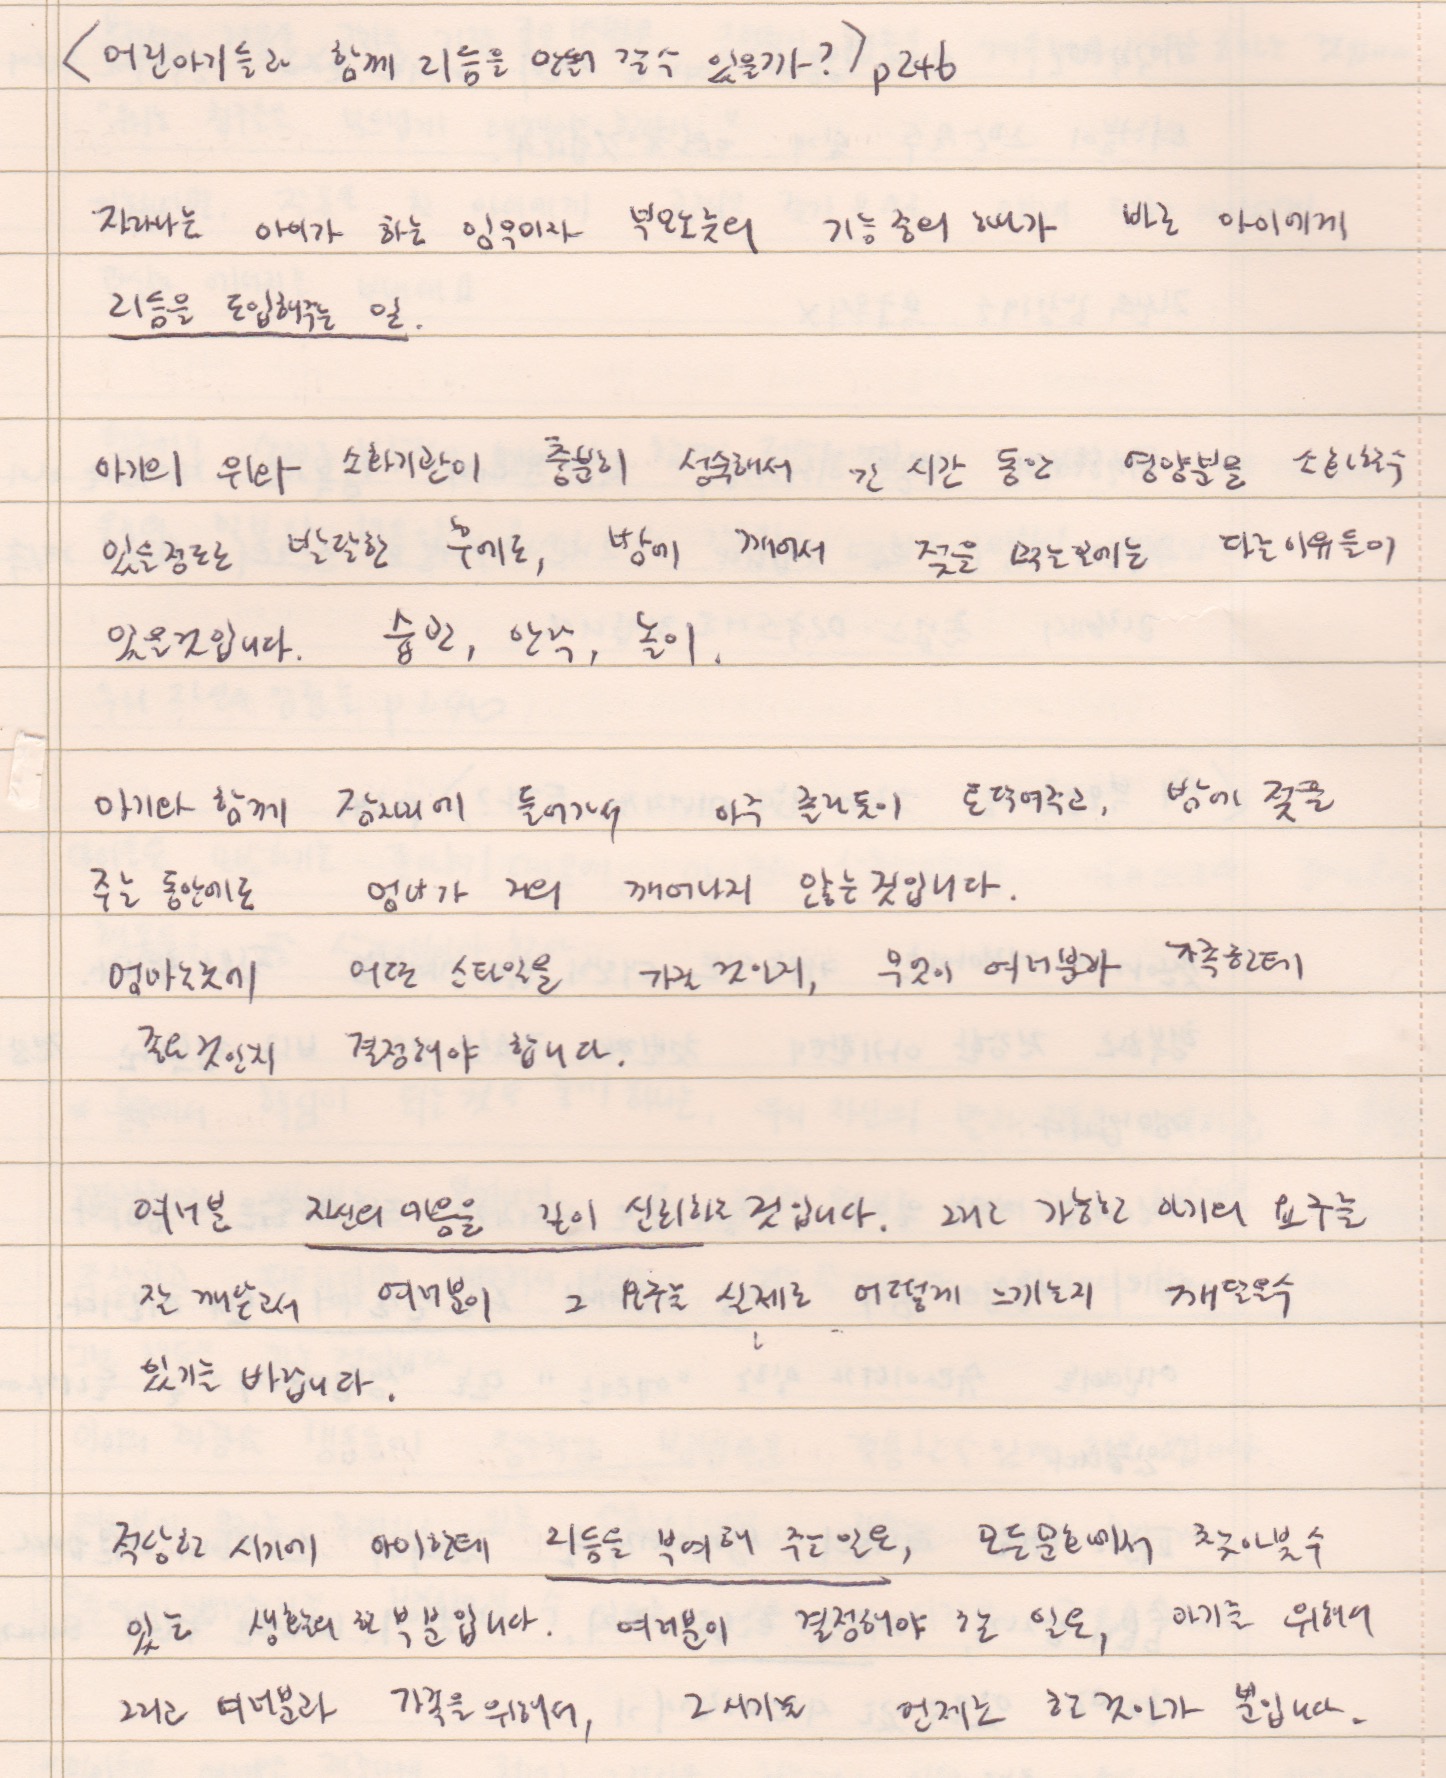 <어린아기들과 함께 리듬을 만들어 갈수 있을까?> p246
자라나는 아이가 하는 임무이자 부모노릇의 기능중의 하나가 바로 아이에게
리듬을 도입해주는 일.
아기의 위와 소화기관이 충분히 성숙해서 긴 시간 동안 영양분을 소화할수
있을정도로 발달한 후에도, 밤에 깨어서 젖을 먹는데에는 다른이유들이
있을것입니다. 습관, 안락, 놀이.
아기와 함께 잠자리에 들어가서 아주 졸리듯이 토닥여주고, 밤에 젖을
주는 동안에도 엄마가 거의 깨어나지 않는것입니다.
엄마노릇에 어떤 스타일을 가질 것인지, 무엇이 여러분과 가족한테
중요한것인지 결정해야 합니다.
여러분 자신의 마음을 깊이 신뢰하는 것입니다. 그리고 가능한 아기의 요구를
잘 깨닫고서 여러분이 그 요구를 실제로 어떻게 느끼는지 깨달을수
있기를 바랍니다.
적당한 시기에 아이한테 리듬을 부여해 주는일은, 모든문화에서 찾아볼 수
있는 생활의 한 부분입니다. 여러분이 결정해야 할 일은, 아기를 위해서
그리고 여러분과 가족을 위해서, 그 시기를 언제로 할 것인가 뿐입니다.